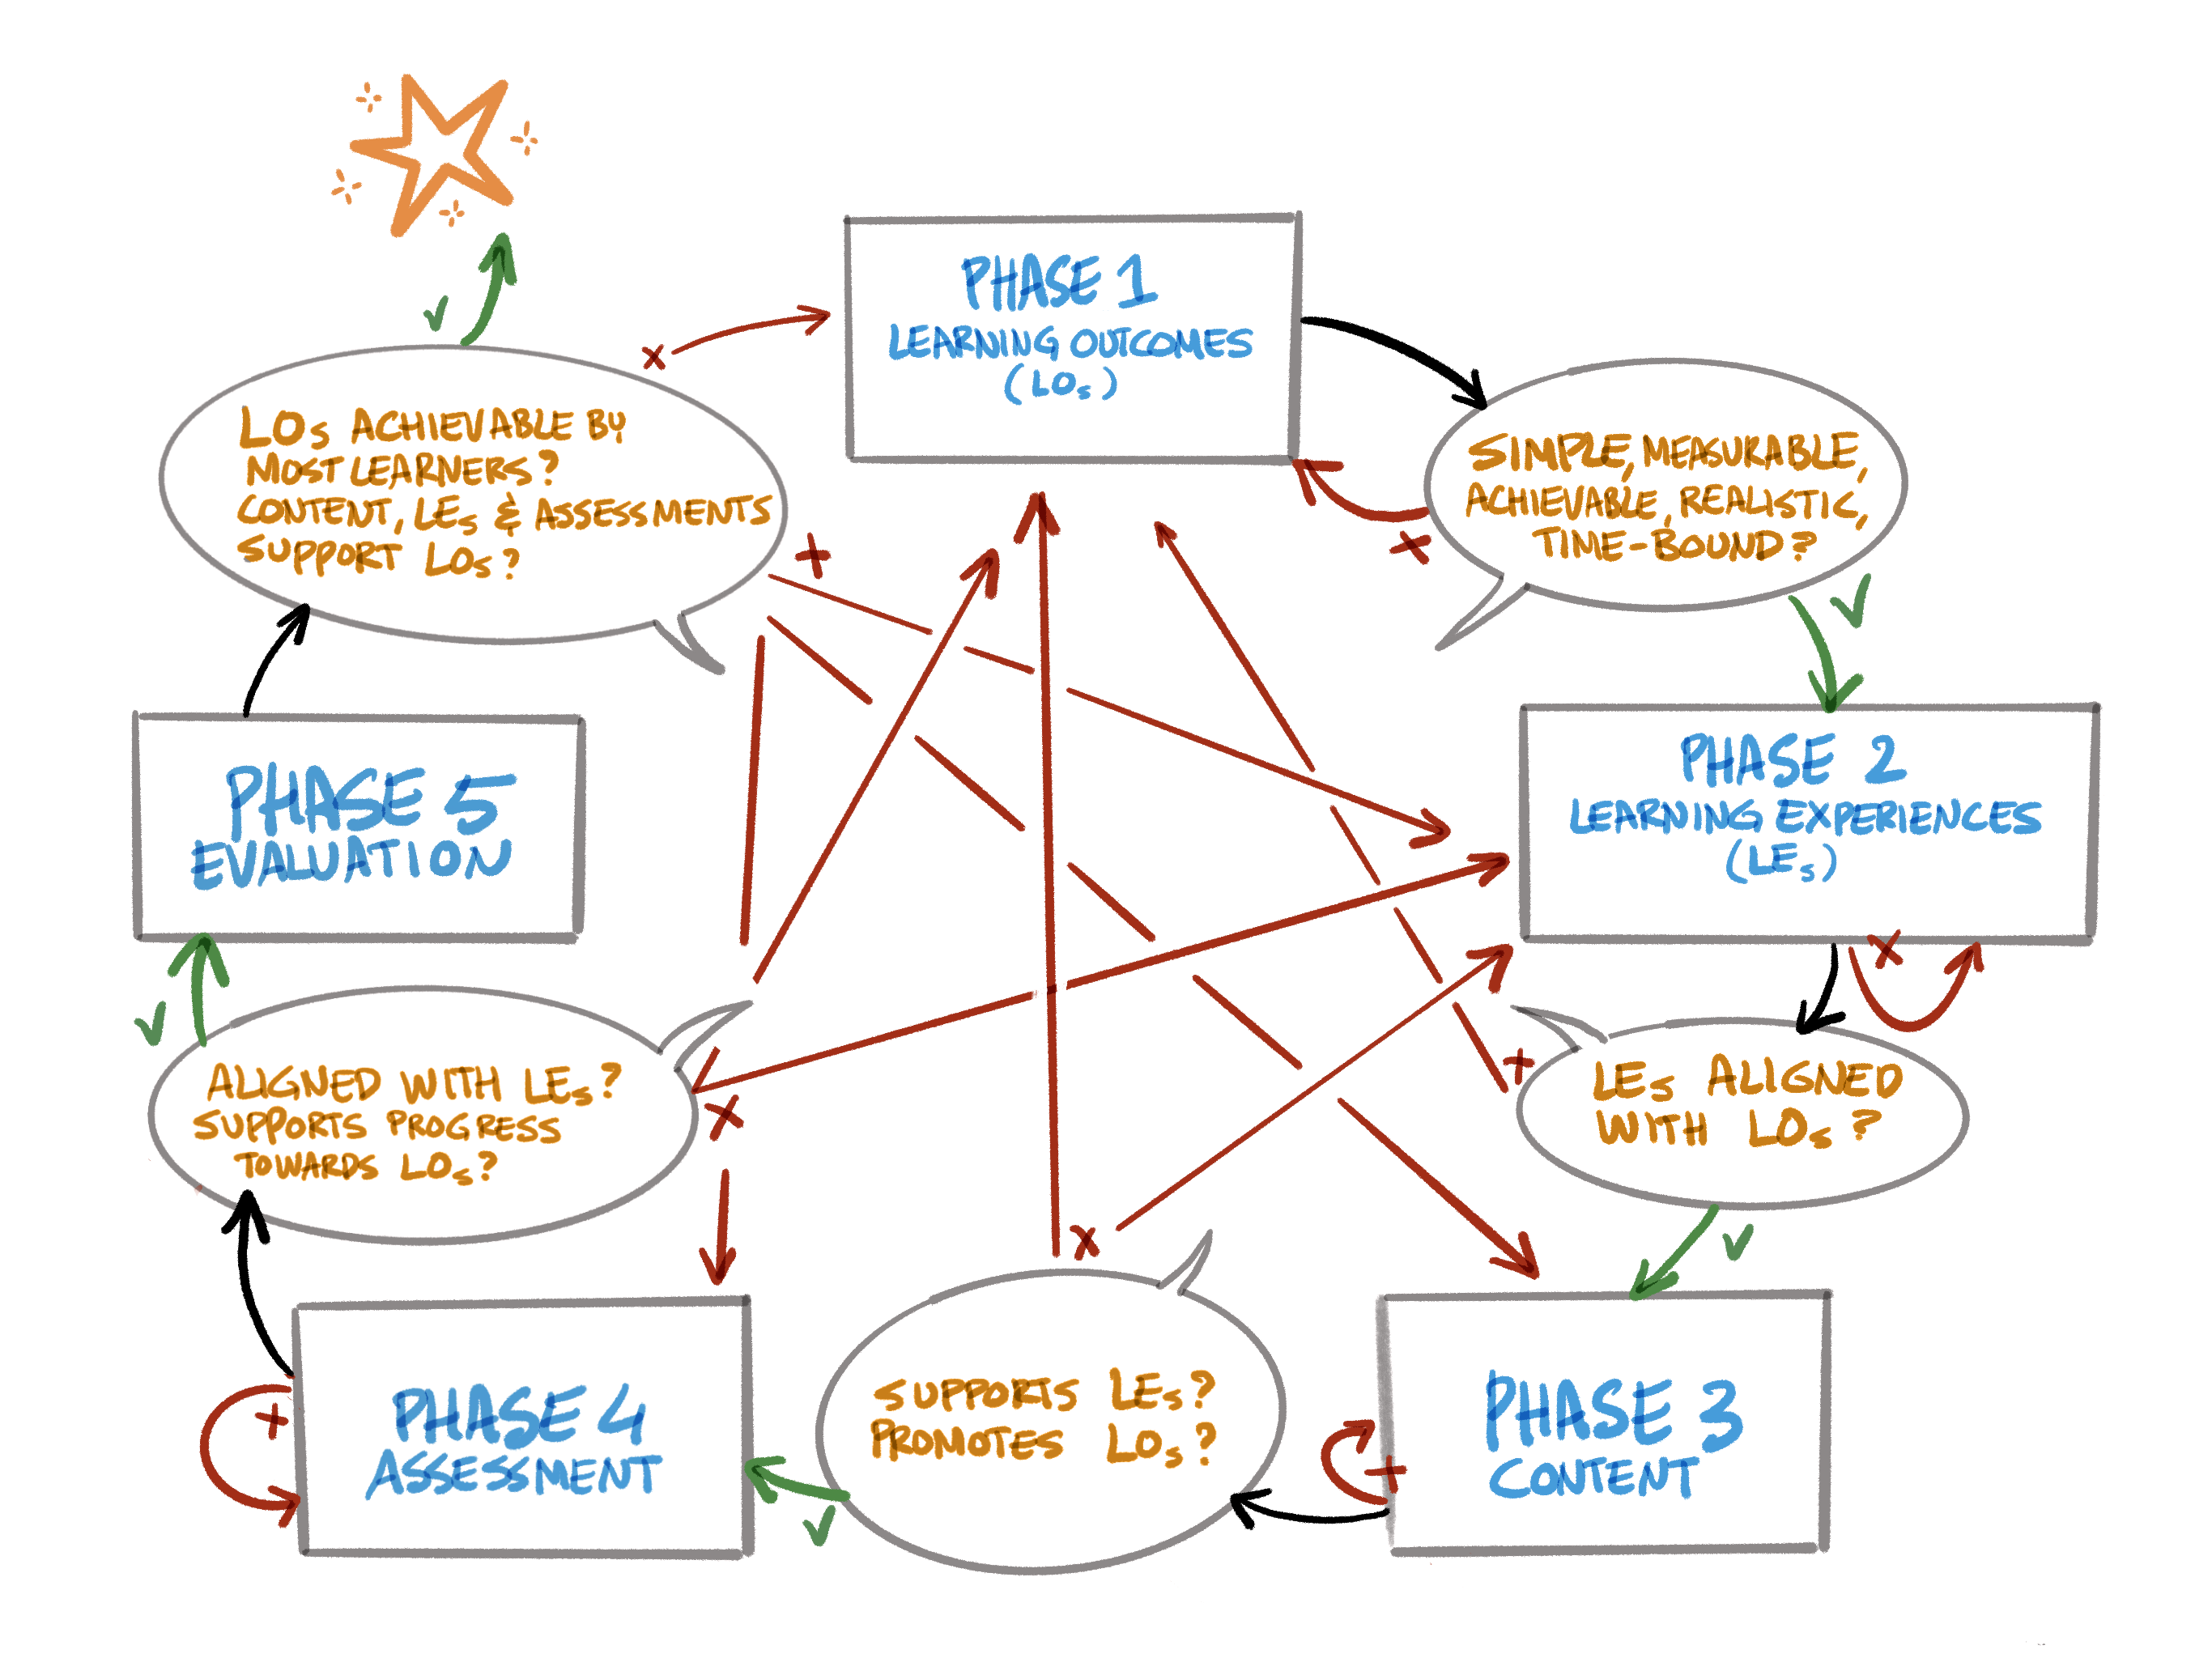 PHASE 1
LEARNING OUTCOMES
(LOs)
SIMPLE, MEASURABLE,
ACHIEVABLE, REALISTIC,
TIME-BOUND?
PHASE 2
LEARNING EXPERIENCES
(LEs)
LEs ALIGNED
WITH LOs?
PHASE 3
CONTENT
SUPPORTS LEs?
PROMOTES LOs?
PHASE 4
ASSESSMENT
ALIGNED WITH LEs?
SUPPORTS PROGRESS
TOWARDS LOs?
PHASE 5
EVALUATION
LOs ACHIEVABLE BY
MOST LEARNERS?
CONTENT, LEs & ASSESSMENTS
SUPPORT LOs?